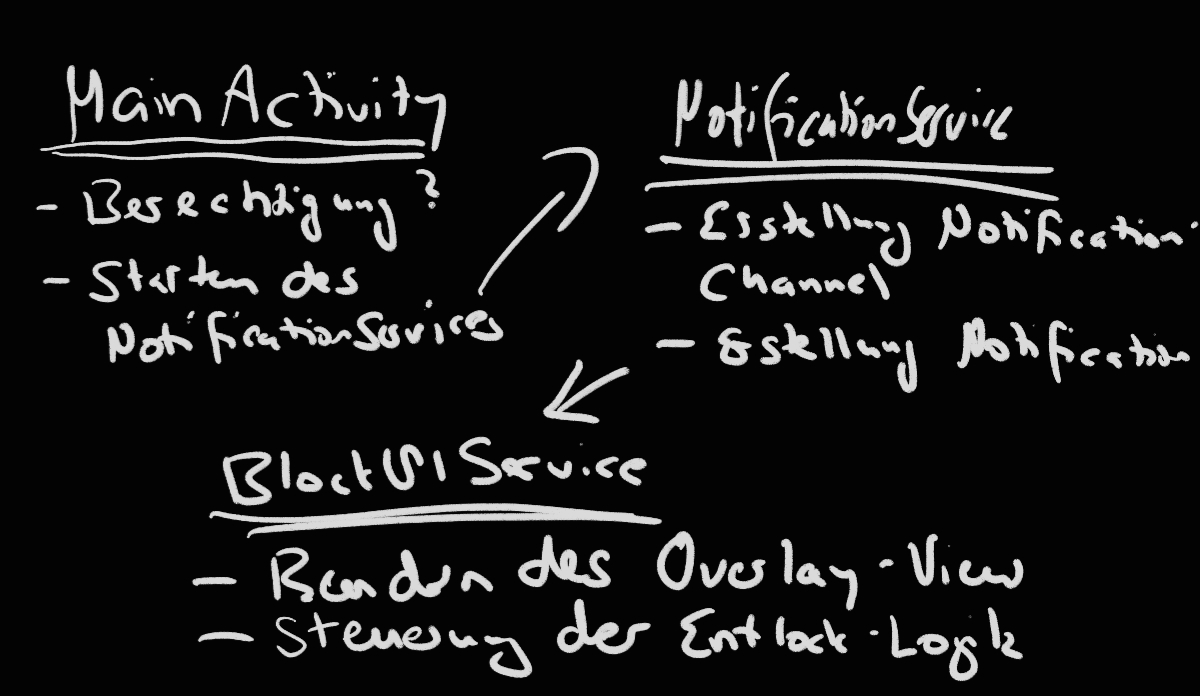 MainActivity
- Berechtigung?
- Starten des
NotificationServices
NotificationService
- Erstellung Notification-
Channel
- Erstellung Notification
BlockUIService
- Rendern des Overlay-View
- Steuerung der Entlock-Logik